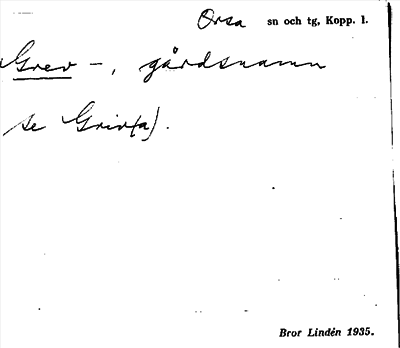 Orsa sn och tg, Kopp. l.
Grev -, gårdsnamn
se Griv(a).
Bror Lindén 1935.